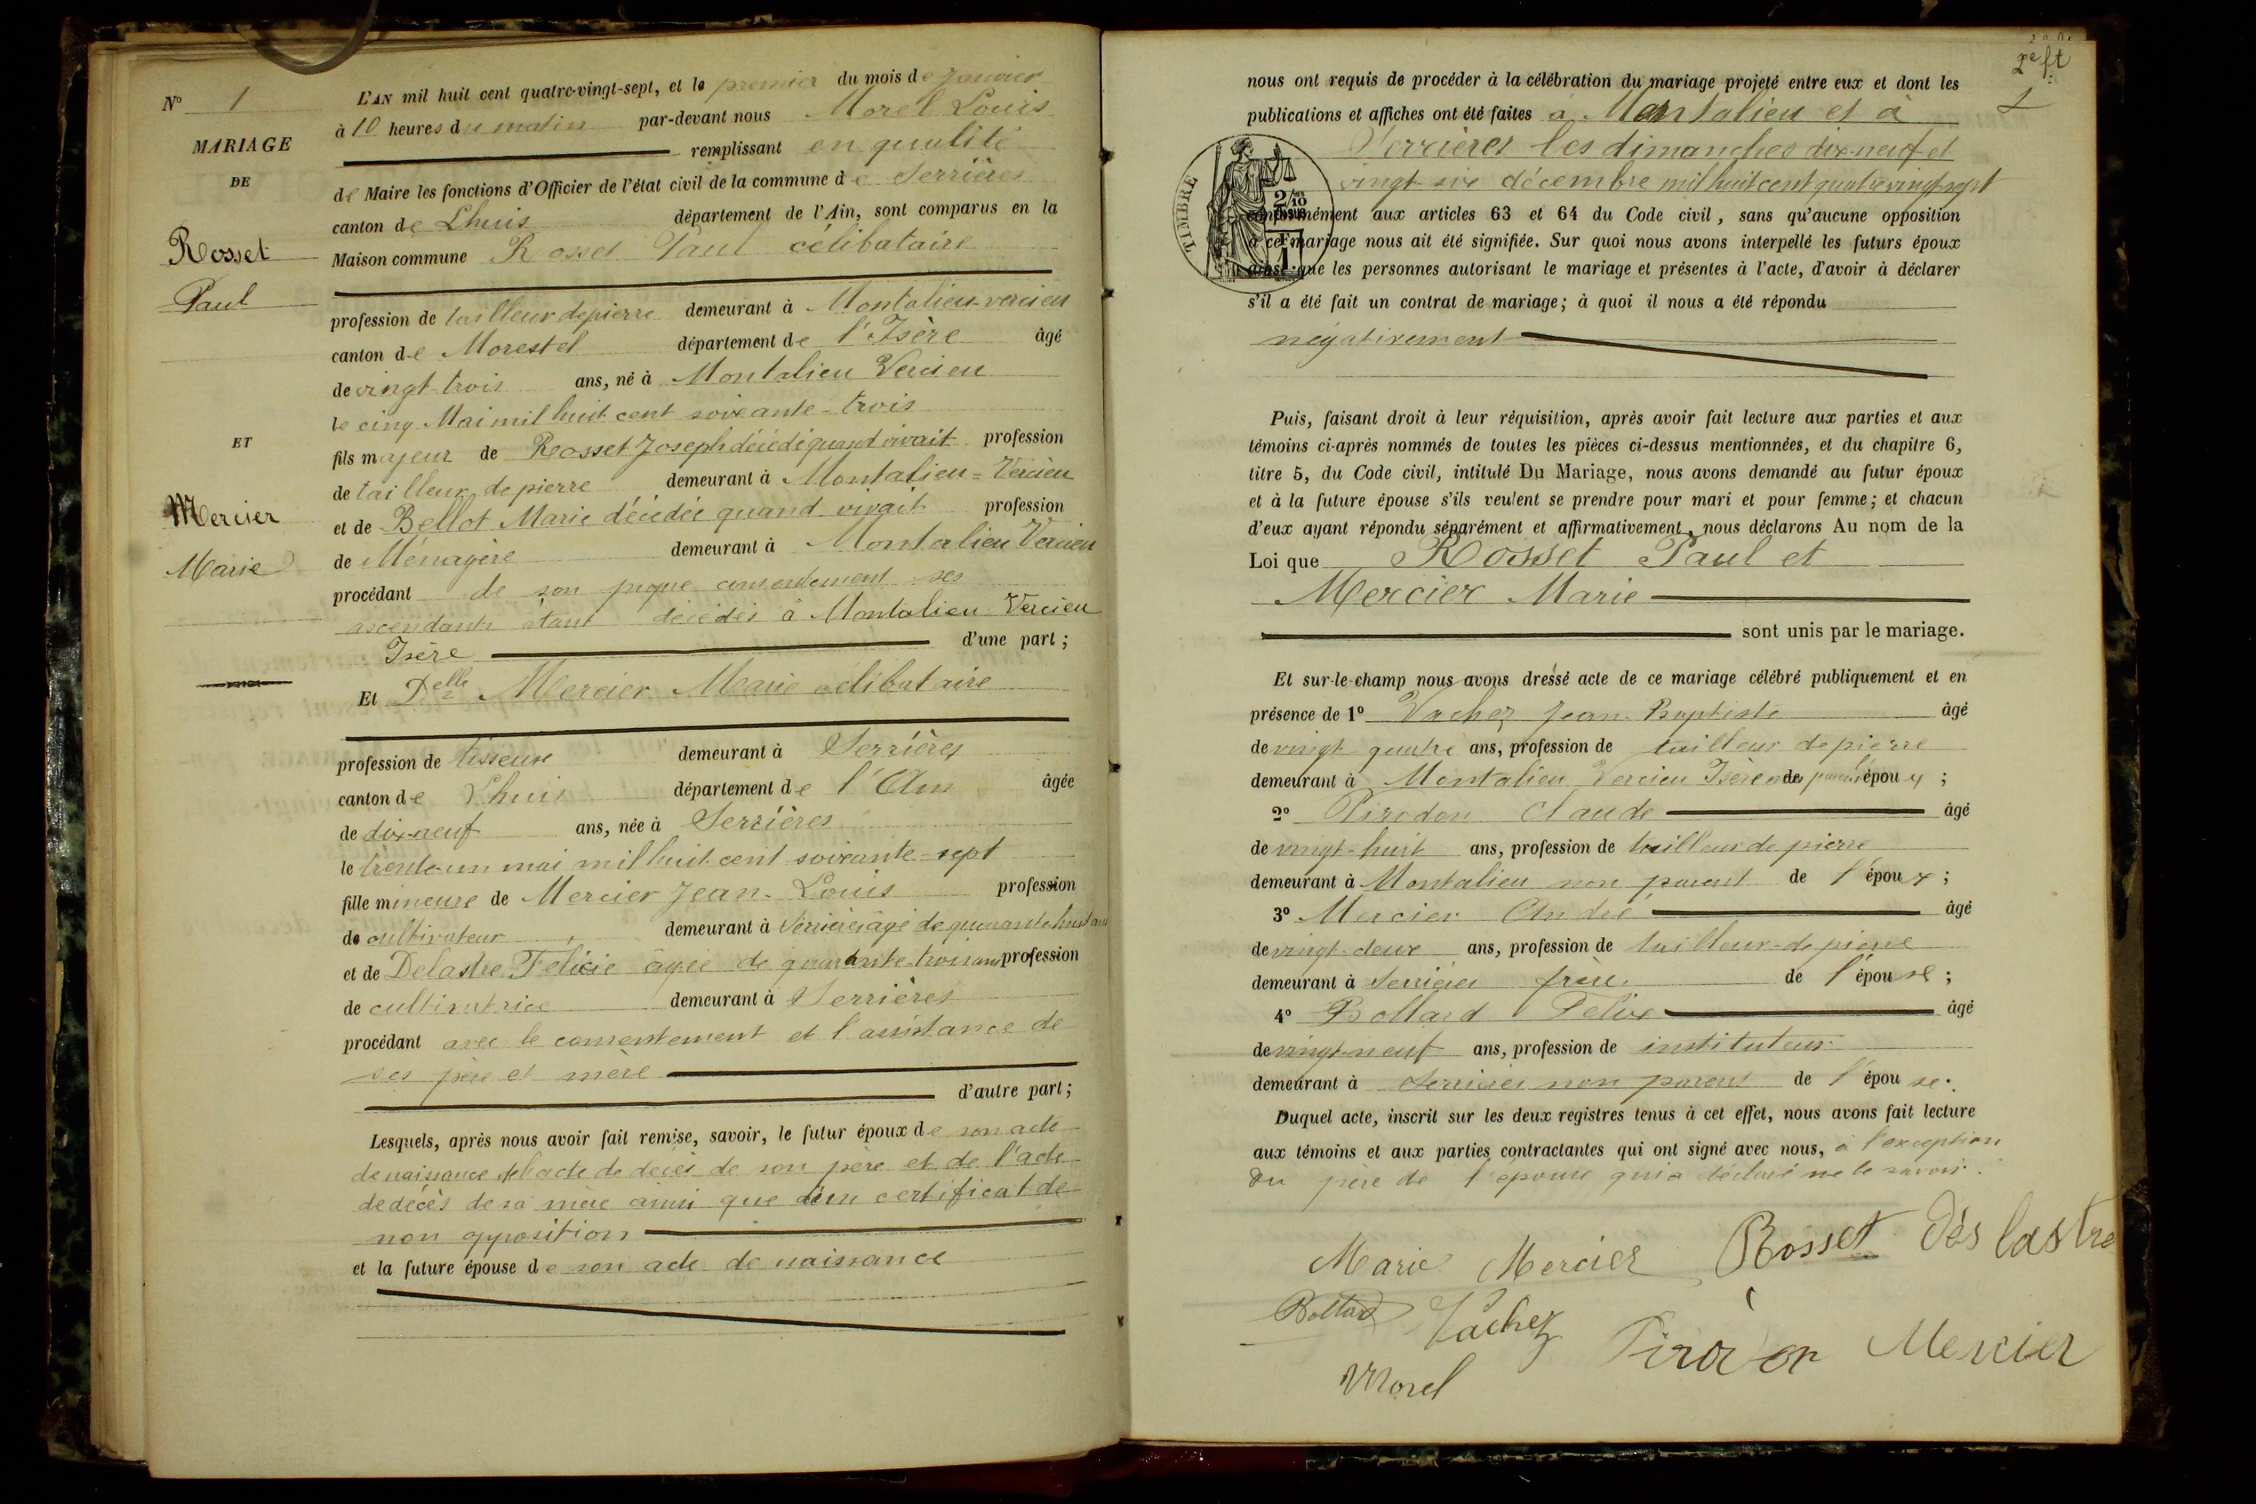 N° 1
MARIAGE
DE
Rosset
Paul
ET
Mercier
Marie
L'AN mil huit cent quatre-vingt-sept, et le premier du mois de Janvier
à 10 heures du matin par-devant nous Morel Louis
remplissant en qualité
de Maire les fonctions d'Officier de l'état civil de la commune de Serrières
canton de Lhuis département de l'Ain, sont comparus en la
Maison commune Rosset Paul célibataire
profession de tailleur de pierre demeurant à Montalieu-vercieu
canton de Morestel département de l'Isère âgé
de vingt-trois ans, né à Montalieu Vercieu
le cinq Mai mil huit cent soixante-trois
fils majeur de Rosset Joseph décédé quand vivait profession
de tailleur de pierre demeurant à Montalieu=Vercieu
et de Bellot Marie décédée quand vivait profession
de Ménagère demeurant à Montalieu Vercieu
procédant de son propre consentement ses
ascendants étant décédés à Montalieu Vercieu
Isère d'une part ;
Et Delle Mercier Marie célibataire
profession de tisseuse demeurant à Serrières
canton de Lhuis département de l'Ain âgée
de dix-neuf ans, née à Serrières
le trente-un mai mil huit cent soixante-sept
fille mineure de Mercier Jean-Louis profession
de cultivateur demeurant à Serrières âgé de quarante huit ans
et de Delastre Félicie âgée de quarante-trois ans profession
de cultivatrice demeurant à Serrières
procédant avec le consentement et l'assistance de
ses père et mère
d'autre part ;
Lesquels, après nous avoir fait remise, savoir, le futur époux de son acte
de naissance de l'acte de décès de son père et de l'acte
de décès de sa mère ainsi que d'un certificat de
non opposition
et la future épouse de son acte de naissance
2e ft
1
nous ont requis de procéder à la célébration du mariage projeté entre eux et dont les
publications et affiches ont été faites à Montalieu et à
Serrières les dimanches dix-neuf et
vingt six décembre mil huit cent quatre vingt sept
TIMBRE
2/10
EN SUS
1F
conformément aux articles 63 et 64 du Code civil, sans qu'aucune opposition
à ce mariage nous ait été signifiée. Sur quoi nous avons interpellé les futurs époux
ainsi que les personnes autorisant le mariage et présentes à l'acte, d'avoir à déclarer
s'il a été fait un contrat de mariage ; à quoi il nous a été répondu
négativement
Puis, faisant droit à leur réquisition, après avoir fait lecture aux parties et aux
témoins ci-après nommés de toutes les pièces ci-dessus mentionnées, et du chapitre 6,
titre 5, du Code civil, intitulé Du Mariage, nous avons demandé au futur époux
et à la future épouse s'ils veulent se prendre pour mari et pour femme ; et chacun
d'eux ayant répondu séparément et affirmativement, nous déclarons Au nom de la
Loi que Rosset Paul et
Mercier Marie
sont unis par le mariage.
Et sur-le-champ nous avons dressé acte de ce mariage célébré publiquement et en
présence de 1° Vachez Jean-Baptiste âgé
de vingt quatre ans, profession de tailleur de pierre
demeurant à Montalieu Vercieu Isère de époux ;
2° Pirodon Claude âgé
de vingt-huit ans, profession de tailleur de pierre
demeurant à Montalieu non parent de l'époux ;
3° Mercier André âgé
de vingt-deux ans, profession de tailleur-de pierre
demeurant à Serrières frère de l'épouse ;
4° Bollard Félix âgé
de vingt-neuf ans, profession de instituteur
demeurant à Serrières non parent de l'épouse.
Duquel acte, inscrit sur les deux registres tenus à cet effet, nous avons fait lecture
aux témoins et aux parties contractantes qui ont signé avec nous, à l'exception
du père de l'épouse qui a déclaré ne le savoir.
Marie Mercier Rosset Dès lastre
Bollard Vachez Pirodon Mercier
Morel